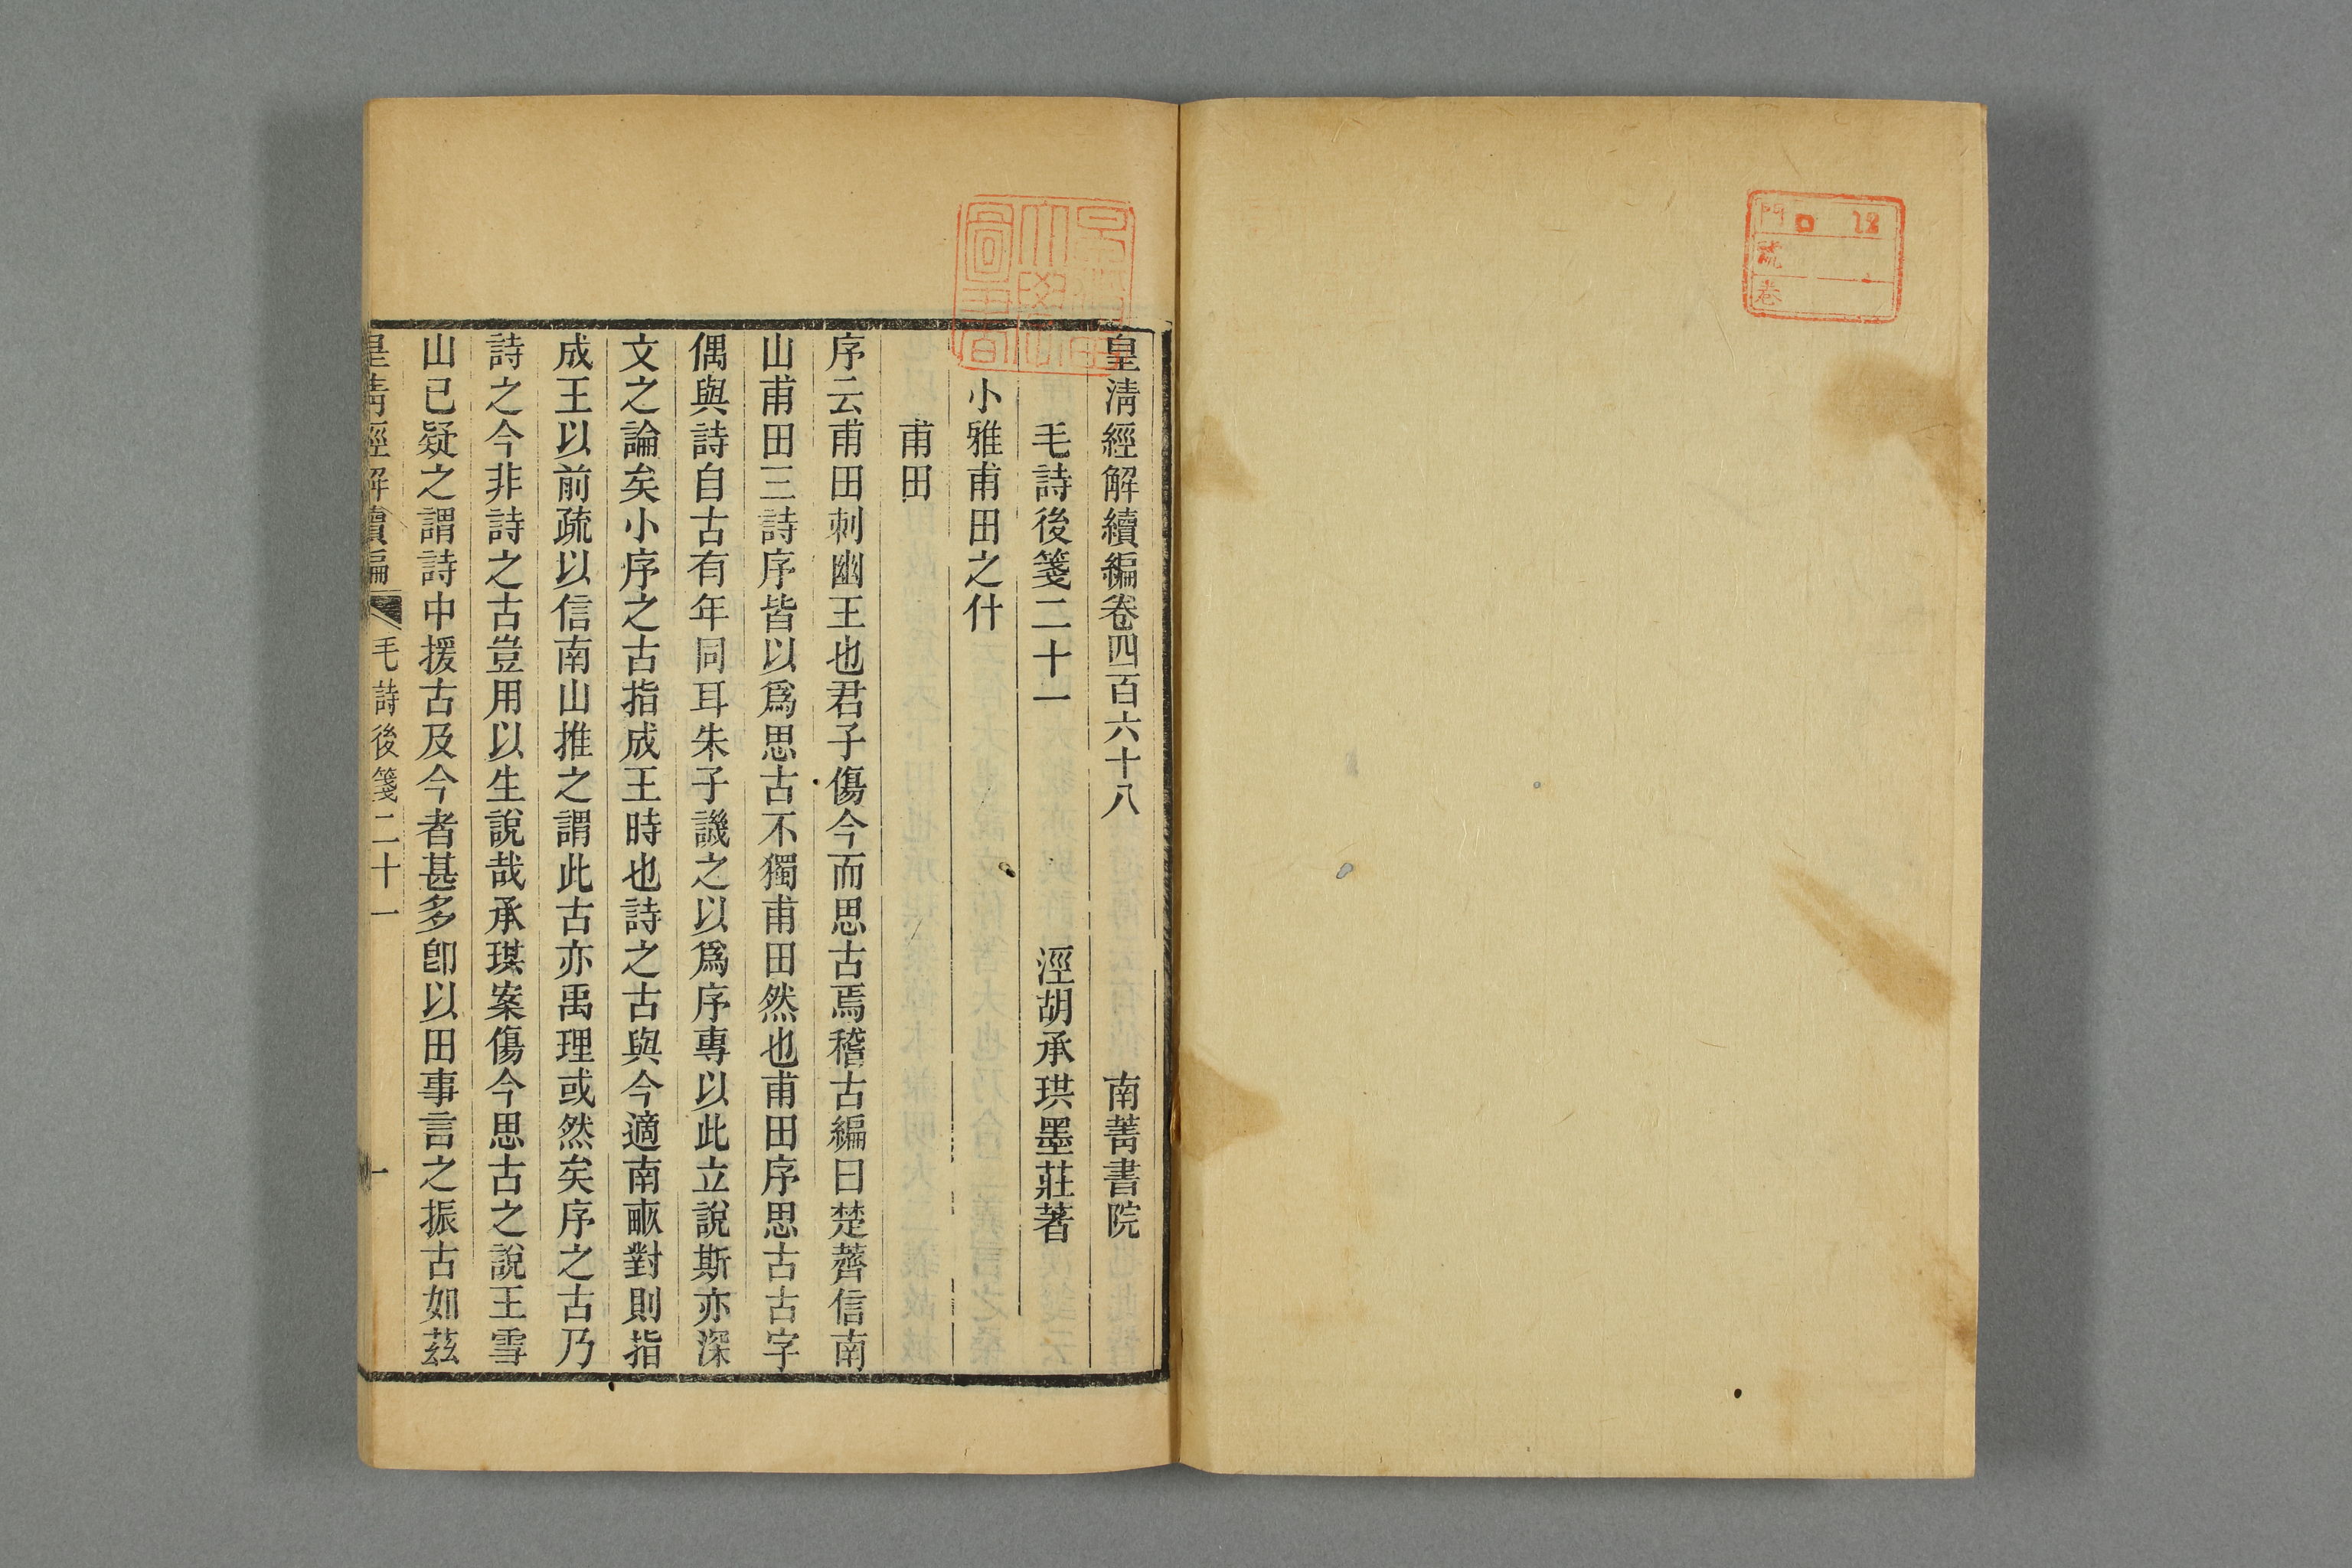 門 口 12
號
卷
皇清經解續編卷四百六十八 南菁書院
毛詩後箋二十一 涇胡承珙墨莊著
小雅甫田之什
甫田
序云甫田刺幽王也君子傷今而思古焉稽古編曰楚薺信南
山甫田三詩序皆以爲思古不獨甫田然也甫田序思古古字
偶與詩自古有年同耳朱子譏之以爲序專以此立說斯亦深
文之論矣小序之古指成王時也詩之古與今適南畝對則指
成王以前疏以信南山推之謂此古亦禹理或然矣序之古乃
詩之今非詩之古豈用以生說哉承珙案傷今思古之說王雪
山已疑之謂詩中援古及今者甚多卽以田事言之振古如茲
皇清經解續編 毛詩後箋二十一 一